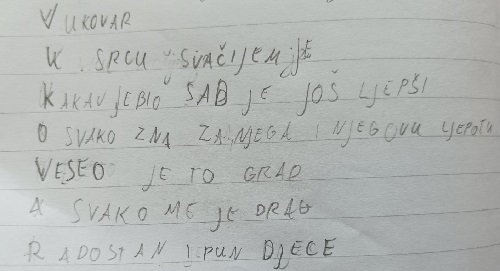 VUKOVAR
U SRCU U SVAČIJEM JE
KAKAV JE BIO SAD JE JOŠ LJEPŠI
O SVAKO ZNA ZA NJEGA I NJEGOVU LJEPOTU
VESEO JE TO GRAD
A SVAKOME JE DRAG
RADOSTAN I PUN DJECE